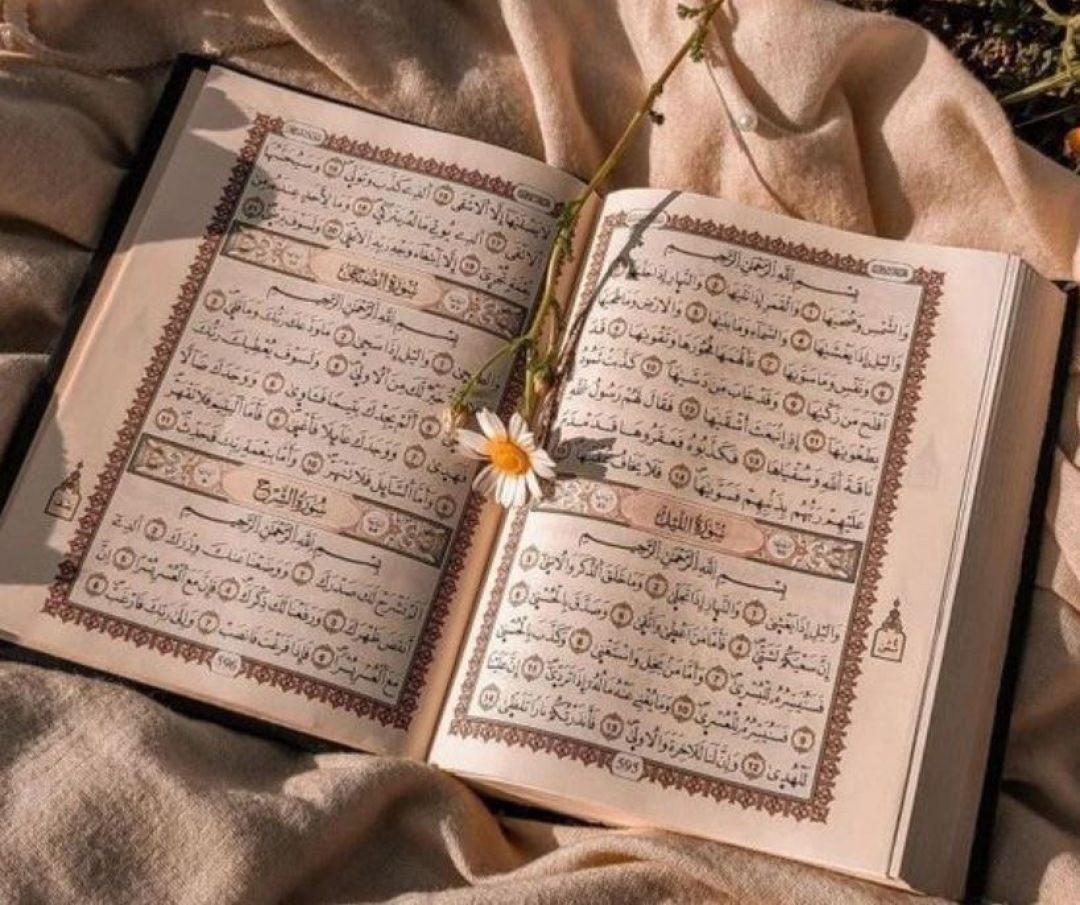 بسم الله الرحمن الرحيم
والشمس وضحيها ١ والقمر إذا تليها ٢ والنهار إذا جليها
واليل إذا يغشيها ٤ والسماء وما بنيها ٥ والارض وما طحيها
٦ ونفس وما سويها ٧ فألهمها فجورها وتقويها ٨ قد
افلح من زكيها ٩ وقد خاب من دسيها ١٠ كذبت ثمود
بطغويها ١١ إذ انبعث أشقيها ١٢ فقال لهم رسول الله
ناقة الله وسقيها ١٣ فكذبوه فعقروها فدمدم
عليهم ربهم بذنبهم فسويها ١٤ فلا يخاف
سورة الليل
بسم الله الرحمن الرحيم
واليل إذا يغشى ١ والنهار إذا تجلى ٢ وما خلق الذكر والانثى ٣
إن سعيكم لشتى ٤ فأما من اعطى واتقى ٥ وصدق بالحسنى ٦
فسنيسره لليسرى ٧ وأما من بخل واستغنى ٨ وكذب بالحسنى
٩ فسنيسره للعسرى ١٠ وما يغني عنه ماله إذا تردى ١١ إن علينا
للهدى ١٢ وإن لنا للاخرة والاولى ١٣ فأنذرتكم نارا تلظى ١٤
595
لا يصليها إلا الاشقى ١٥ الذي كذب وتولى ١٦ وسيجنبها
الاتقى ١٧ الذي يوتي ماله يتزكى ١٨ وما لأحد عنده من
نعمة تجزى ١٩ إلا ابتغاء وجه ربه الاعلى ٢٠ ولسوف يرضى ٢١
سورة الضحى
بسم الله الرحمن الرحيم
والضحى ١ واليل إذا سجى ٢ ما ودعك ربك وما قلى ٣
خير لك من الاولى ٤ ولسوف يعطيك ربك
ألم يجدك يتيما فآوى ٦ ووجدك ضالا
فهدى ٧ ووجدك عائلا فأغنى ٨ فأما اليتيم فلا تقهر
٩ وأما السائل فلا تنهر ١٠ وأما بنعمة ربك فحدث ١١
سورة الشرح
بسم الله الرحمن الرحيم
ألم نشرح لك صدرك ١ ووضعنا عنك وزرك ٢ الذي
أنقض ظهرك ٣ ورفعنا لك ذكرك ٤ فإن مع العسر يسرا ٥ إن
مع العسر يسرا ٦ فإذا فرغت فانصب ٧ وإلى ربك فارغب ٨
596